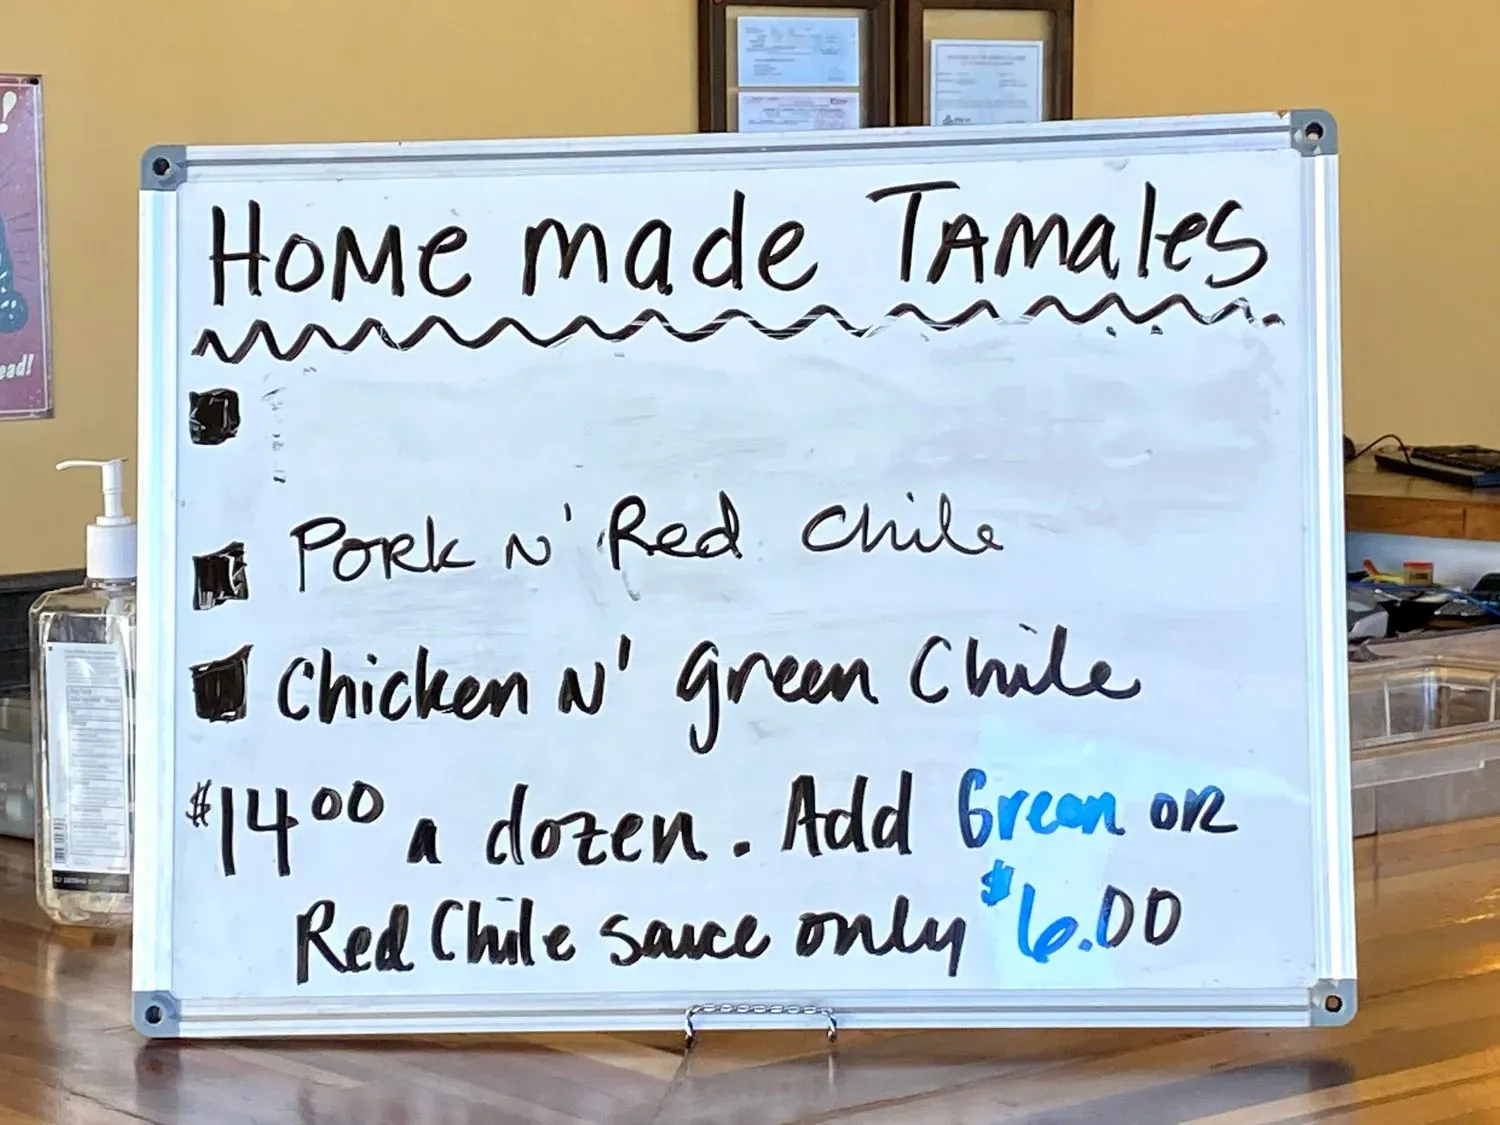 Home made Tamales
Pork N' Red Chile
Chicken N' green Chile
$14.00 a dozen. Add Green or
Red Chile sauce only $6.00
ead!